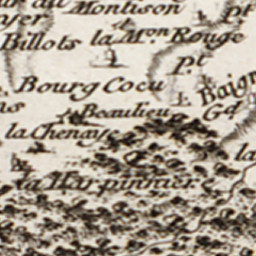 Montison
pt
Billots la Mon Rouge
pt
Bourg Cocu
Baign
Beaulieu Gd
la Chenaye
la
la Harpiniere